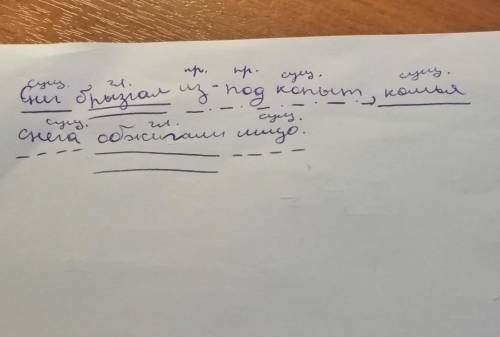 сущ. гл. пр. пр. сущ. сущ.
Снег брызгал из-под копыт, комья
сущ. гл. сущ.
снега обжигали лицо.